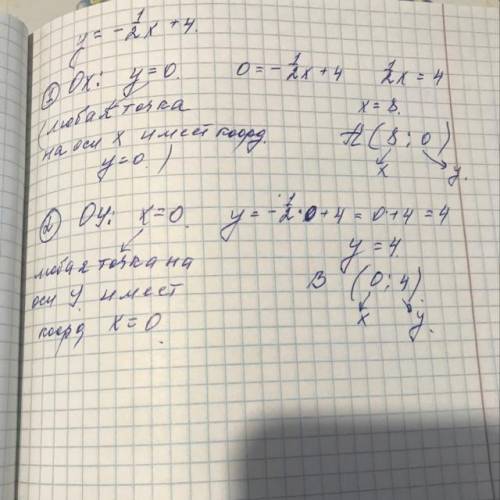 y = -1/2x + 4.
① Ox: y=0. 0 = -1/2x + 4 1/2x = 4
(любая точка x = 8.
на оси x имеет коорд. A (8; 0)
y=0.) x y.
② Oy: x=0. y = -1/2·0+4 = 0+4 = 4
y = 4.
любая точка на B (0; 4)
оси y имеет x y.
коорд x=0.